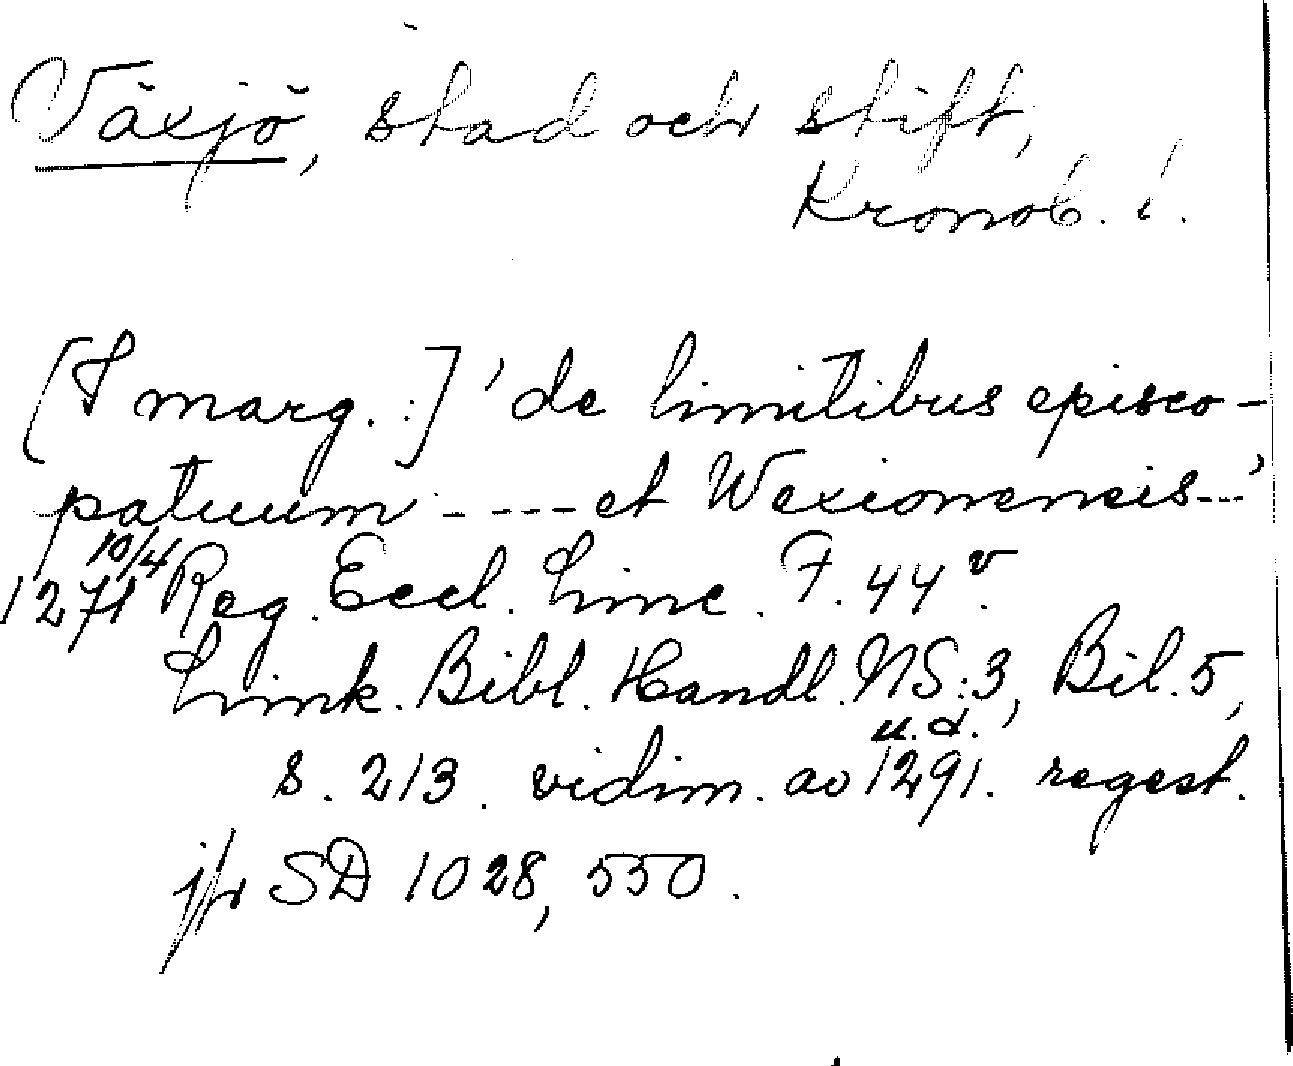 Växjö, stad och stift,
Kronob. l.
[I marg.:] 'de limitibus episco-
patuum ---- et Wexionensis---'
10/4
1271 Reg. Eccl. Linc. F. 44 v.
Link. Bibl. Handl. NS:3, Bil. 5,
u. d.
s. 213. vidim. av 1291. regest.
jfr SD 1028, 550.